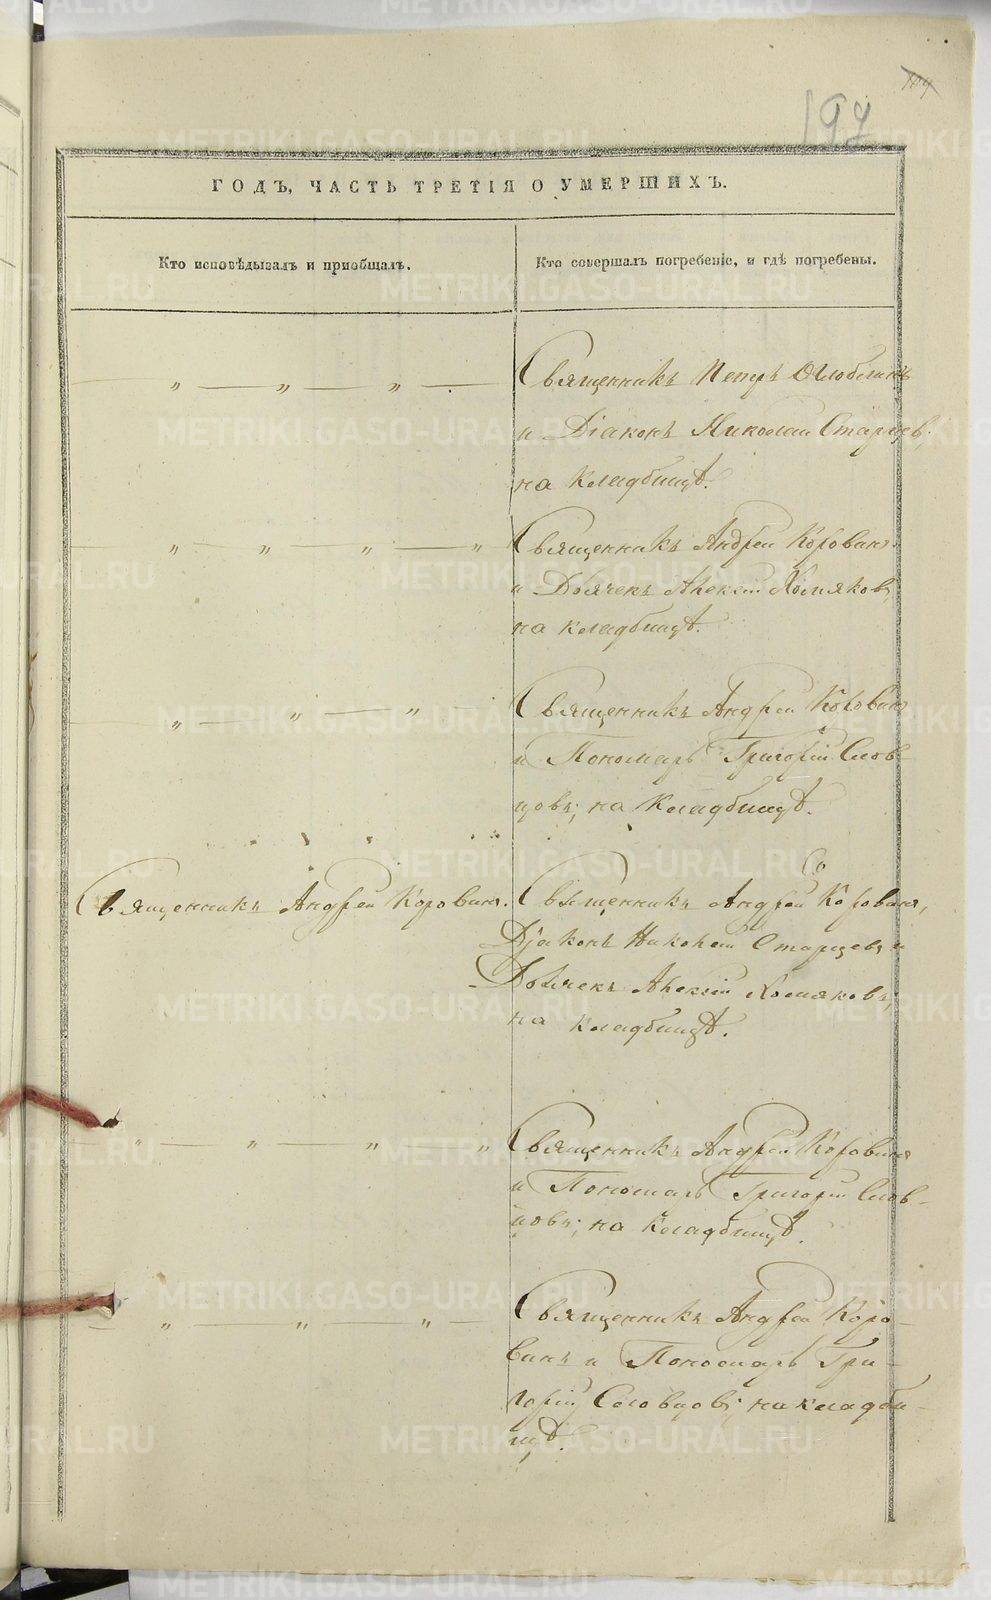 197
ГОДЪ, ЧАСТЬ ТРЕТІЯ О УМЕРШИХЪ.
Кто исповѣдывалъ и пріобщалъ.
Кто совершалъ погребеніе, и гдѣ погребены.
" — " — " —
Священникъ Петръ Оглоблинъ
и Діаконъ Николай Старцев,
на кладбищѣ.
" — " — " — "
Священникъ Андрей Коровинъ
и Дьячекъ Алексѣй Хомяковъ,
на кладбищѣ.
" — " — "
Священникъ Андрей Коровинъ
и Пономарь Григорій Слов-
цовъ; на кладбищѣ.
Священникъ Андрей Коровинъ.
Священникъ Андрей Коровинъ,
Діаконъ Николай Старцевъ и
Дьячекъ Алексій Хомяковъ,
на кладбищѣ.
" — " — " — "
Священникъ Андрей Коровинъ
и Пономарь Григорій Слов-
цовъ; на кладбищѣ.
" — " — " —
Священникъ Андрей Коро-
винъ и Пономарь Гри-
горій Словцовъ; на кладби-
щѣ.
METRIKI.GASO-URAL.RU